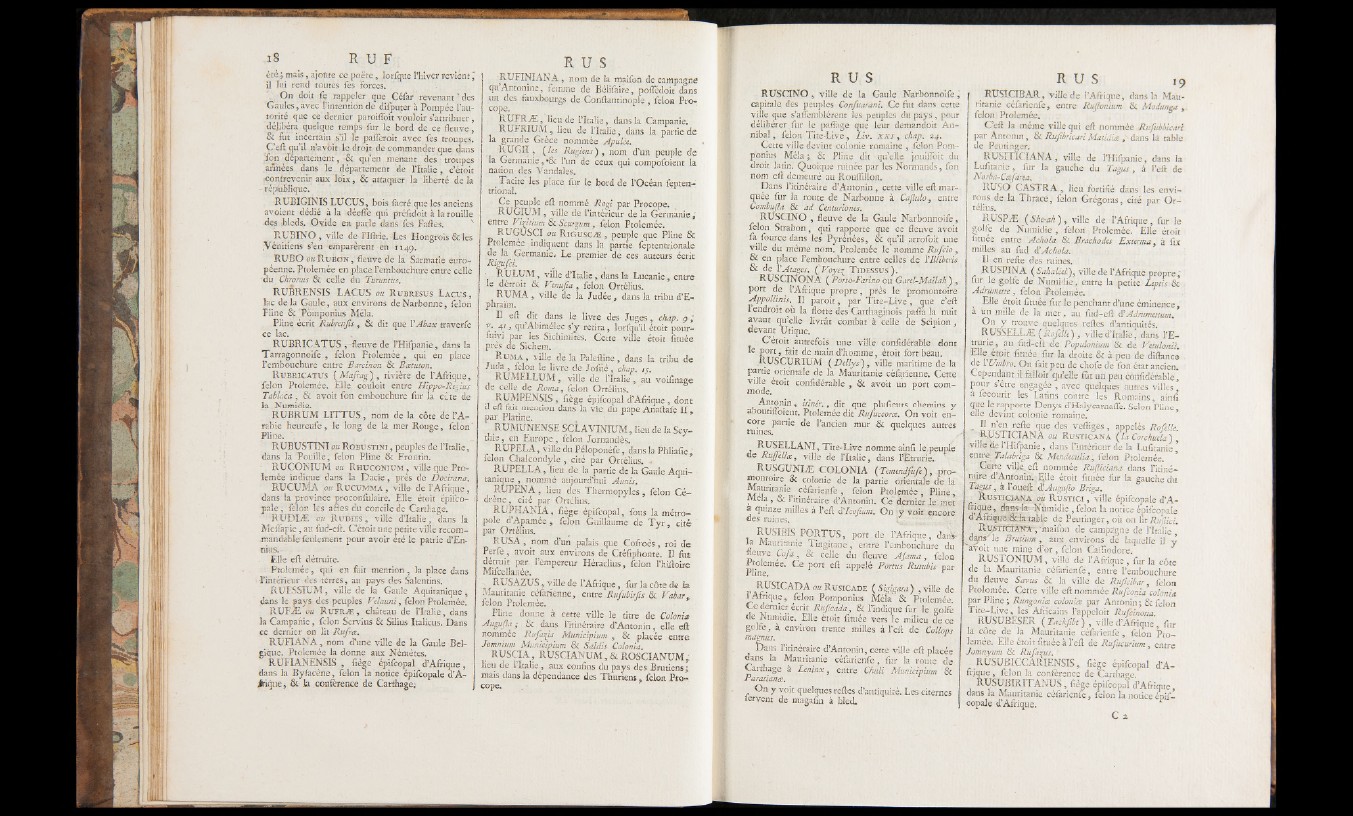 18 R U F
R U S
été; mais, ajoute ce poëte, lorsque l'hiver revient,
il lui rend toutes ses forces.
On doit se rappeler que César revenant des
Gaules, avec l'intention de disputer à Pompée l'au-
torité que ce dernier paroissoit vouloir s'attribuer,
délibéra quelque temps sur le bord de ce fleuve,
& fut incertain s'il le passeroit avec ses troupes.
C'est qu'il n'avoit le droit de commander que dans
son département, & qu'en menant des troupes
armées dans le département de l'Italie, c'étoit
contrevenir aux loix, & attaquer la liberté de la
république.
RUBIGINIS LUCUS, bois sacré que les anciens
avoient dédié à la déesse qui présidoit à la rouille
des bleds. Ovide en parle dans ses Fastes.
RUBINO, ville de l'Istrie. Les Hongrois & les
Vénitiens s'en emparèrent en 1140.
RUBO ou RUBON, fleuve de la Sarmatie euro-
péenne. Ptolemée en place l'embouchure entre celle
du Chronus & celle du Turuntus.
RUBRENSIS LACUS ou RUBRESUS LACUS,
lac de la Gaule, aux environs de Narbonne, selon
Pline & Pomponius Mela.
Pline écrit Rubrensis, & dit que l'Atax traverse
ce lac.
RUBRICATUS, fleuve de l'Hispanie, dans la
Tarragonnoise, selon Ptolemée, qui en place
l'embouchure entre Barcinon & Bætulon.
RUBRICATUS (Mafrag), rivière de l'Afrique,
selon Ptolemée. Elle couloit entre Hippo-Regius
Tabraca, & avoit son embouchure sur la côte de
la Numidie.
RUBRUM LITTUS, nom de la côte de l'A-
rabie heureuse, le long de la mer Rouge, selon
Pline.
RUBUSTINI ou ROBUSTINI, peuples de l'Italie,
dans la Pouille, selon Pline & Frontin.
RUCONIUM ou RHUCONIUM, ville que Pto-
lemée indique dans la Dacie, près de Docirana.
RUCUMA ou RUCUMMA, ville de l'Afrique,
dans la province proconsulaire. Elle étoit épisco-
pale, selon les actes du concile de Carthage.
RUDIÆ ou RUDIES, ville d'Italie, dans la
Messapie, au sud-est. C'étoit une petite ville recom-
mandable seulement pour avoir été le patrie d'En-
nius.
Elle est détruite.
Ptolemée, qui en fait mention, la place dans
l'intérieur des terres, au pays des Salentins.
RUESSIUM, ville de la Gaule Aquitanique,
dans le pays des peuples Velauni, selon Ptolemée.
RUFÆ ou RUFRÆ, château de l'Italie, dans
la Campanie, selon Servius & Silius Italicus. Dans
ce dernier on lit Rufræ.
RUFIANA, nom d'une ville de la Gaule Bel-
gique. Ptolemée la donne aux Némètes.
RUFIANENSIS, siège épiscopal d'Afrique,
dans la Bysacène, selon la notice épiscopale d'A-
frique, & la conférence de Carthage.
RUFINIANA, nom de la maison de campagne
qu'Antonine, femme de Bélisaire, possédoit dans
un des fauxbourgs de Constantinople, selon Pro-
cope.
RUFRÆ, lieu de l'Italie, dans la Campanie.
RUFRIUM, lieu de l'Italie, dans la partie de
la grande Grèce nommée Apulia.
RUGII, (les Rugiens), nom d'un peuple de
la Germanie, & l'un de ceux qui composoient la
nation des Vandales.
Tacite les place sur le bord de l'Océan septen-
trional.
Ce peuple est nommé Rogi par Procope.
RUGIUM, ville de l'intérieur de la Germanie,
entre Viritium & Scurgum, selon Ptolemée.
RUGUSCI ou RIGUSCÆ, peuple que Pline &
Ptolemée indiquent dans la partie septentrionale
de la Germanie. Le premier de ces auteurs écrit
Rigusci.
RULUM, ville d'Italie, dans la Lucanie, entre
le détroit & Venusia, selon Ortélius.
RUMA, ville de la Judée, dans la tribu d'E-
phraïm.
Il est dit dans le livre des Juges, chap. 9,
v. 41, qu'Abimélec s'y retira, lorsqu'il étoit pour-
suivi par les Sichimites. Cette ville étoit située
près de Sichem.
RUMA, ville de la Palestine, dans la tribu de
Juda, selon le livre de Josué, chap. 15.
RUMELLUM, ville de l'Italie, au voisinage
de celle de Roma, selon Ortélius.
RUMPENSIS, siège épiscopal d'Afrique, dont
il est fait mention dans la vie du pape Anastase II,
par Platine.
RUMUNENSE SCLAVINIUM, lieu de la Scy-
thie, en Europe, selon Jornandès.
RUPELA, ville du Péloponèse, dans la Phliasie,
selon Chalcondyle, cité par Ortélius.
RUPELLA, lieu de la partie de la Gaule Aqui-
tanique, nommé aujourd'hui Aunis.
RUPENA, lieu des Thermopyles, selon Cé-
drène, cité par Ortélius.
RUPHANIA, siège épiscopal, sous la métro-
pole d'Apamée, selon Guillaume de Tyr, cité
par Ortélius.
RUSA, nom d'un palais que Cosroès, roi de
Perse, avoit aux environs de Ctésiphonte. Il fut
détruit par l'empereur Héraclius, selon l'histoire
Miscellanée.
RUSAZUS, ville de l'Afrique, sur la côte de la
Mauritanie césarienne, entre Rusubirsis & Vabar,
selon Ptolemée.
Pline donne à cette ville le titre de Colonia
Augusta; & dans l'itinéraire d'Antonin, elle est
nommée Rusazis Municipium, & placée entre
Jomnium Municipium & Saldis Colonia.
RUSCIA, RUSCIANUM, & ROSCIANUM,
lieu de l'Italie, aux confins du pays des Brutiens;
mais dans la dépendance des Thuriens, selon Pro-
cope.
R U S
R U S 19
RUSCINO, ville de la Gaule Narbonnoise,
capitale des peuples Consuarani. Ce fut dans cette
ville que s'assemblèrent les peuples du pays, pour
délibérer sur le passage que leur demandoit An-
nibal, selon Tite-Live, Liv. XXI, chap. 24.
Cette ville devint colonie romaine, selon Pom-
ponius Méla; & Pline dit qu'elle jouissoit du
droit latin. Quoique ruinée par les Normands, son
nom est demeuré au Roussillon.
Dans l'itinéraire d'Antonin, cette ville est mar-
quée sur la route de Narbonne à Castulo, entre
Combusta & ad Centuriones.
RUSCINO, fleuve de la Gaule Narbonnoise,
selon Strabon, qui rapporte que ce fleuve avoit
sa source dans les Pyrénées, & qu'il arrosoit une
ville du même nom. Ptolemée le nomme Ruscio,
& en place l'embouchure entre celles de l'Illiberis
& de l'Atagus. (Voyez TIDESSUS).
RUSCINONA (Porto-Farino ou Garel-Mailah),
port de l'Afrique propre, près le promontoire
Appollinis. Il paroît, par Tite-Live, que c'est
l'endroit où la flotte des Carthaginois passa la nuit
avant qu'elle livrât combat à celle de Scipion,
devant Utique.
C'étoit autrefois une ville considérable dont
le port, fait de main d'homme, étoit fort beau.
RUSCURIUM (Dellys), ville maritime de la
partie orientale de la Mauritanie césarienne. Cette
ville étoit considérable, & avoit un port com-
mode.
Antonin, itinér., dit que plusieurs chemins y
aboutissoient. Ptolemée dit Rusuccoræ. On voit en-
core partie de l'ancien mur & quelques autres
ruines.
RUSELLANI, Tite-Live nomme ainsi le peuple
de Rusellæ, ville de l'Italie, dans l'Etrurie.
RUSGUNIÆ COLONIA (Temendfuse), pro-
montoire & colonie de la partie orientale de la
Mauritanie césarienne, selon Ptolemée, Pline,
Méla, & l'itinéraire d'Antonin. Ce dernier le met
à quinze milles à l'est d'Icosium. On y voit encore
des ruines.
RUSIBIS PORTUS, port de l'Afrique, dans
la Mauritanie Tingitane, entre l'embouchure du
fleuve Cusa, & celle du fleuve Asama, selon
Ptolemée. Ce port est appelé Portus Rutubis par
Pline.
RUSICADA ou RUSICADE (Sgigata), ville de
l'Afrique, selon Pomponius Méla & Ptolemée.
Ce dernier écrit Rusicada, & l'indique sur le golfe
de Numidie. Elle étoit située vers le milieu de ce
golfe, à environ trente milles à l'est de Collops
magnus.
Dans l'itinéraire d'Antonin, cette ville est placée
dans la Mauritanie césarienne, sur la route de
Carthage à Lenixe, entre Chulli Municipium &
Paratiana.
On y voit quelques restes d'antiquité. Les citernes
servent de magasin à bled.
RUSICIBAR, ville de l'Afrique, dans la Mau-
ritanie césarienne, entre Rustonium & Modunga,
selon Ptolemée.
C'est la même ville qui est nommée Rusubbicari
par Antonin, & Rusibricari Matidiæ, dans la table
de Peutinger.
RUSITICIANA, ville de l'Hispanie, dans la
Lusitanie, sur la gauche du Tagus, à l'est de
Norba-Cæsarea.
RUSO CASTRA, lieu fortifié dans les envi-
rons de la Thrace, selon Grégoras, cité par Or-
télius.
RUSPÆ (Sbeah), ville de l'Afrique, sur le
golfe de Numidie, selon Ptolemée. Elle étoit
située entre Achola & Brachodes Extrema, à six
milles au sud d'Achola.
Il en reste des ruines.
RUSPINA (Sahaleel), ville de l'Afrique propre,
sur le golfe de Numidie, entre la petite Leptis &
Adrumete, selon Ptolemée.
Elle étoit située sur le penchant d'une éminence,
à un mille de la mer, au sud-est d'Adrumetum.
On y trouve quelques restes d'antiquités.
RUSSELLÆ (Roselle), ville d'Italie, dans l'E-
trurie, au sud-est de Populonium & de Vetulonii.
Elle étoit située sur la droite & à peu de distance
de l'Umbro. On sait peu de chose de son état ancien.
Cependant il falloit qu'elle fût un peu considérable,
pour s'être engagée, avec quelques autres villes,
à secourir les Latins contre les Romains, ainsi
que le rapporte Denys d'Halycarnasse. Selon Pline,
elle devint colonie romaine.
Il n'en reste que des vestiges, appelés Roselle.
RUSTICIANA ou RUSTICANA (la Corchuela),
ville de l'Hispanie, dans l'intérieur de la Lusitanie,
entre Talabriga & Mendeculia, selon Ptolemée.
Cette ville est nommée Rusticiana dans l'itiné-
raire d'Antonin. Elle étoit située sur la gauche du
Tagus, à l'ouest d'Augusto Briga.
RUSTICIANA ou RUSTICI, ville épiscopale d'A-
frique, dans la Numidie, selon la notice épiscopale
d'Afrique & la table de Peutinger, où on lit Rustici.
RUSTICIANA, maison de campagne de l'Italie,
dans le Brutium, aux environs de laquelle il y
avoit une mine d'or, selon Cassiodore.
RUSTONIUM, ville de l'Afrique, sur la côte
de la Mauritanie césarienne, entre l'embouchure
du fleuve Savus & la ville de Rusicibar, selon
Ptolomée. Cette ville est nommée Rusconia colonia
par Pline; Rungonia colonia par Antonin; & selon
Tite-Live, les Africains l'appeloit Ruscinona.
RUSUBESER (Tackssebt), ville d'Afrique, sur
la côte de la Mauritanie césarienne, selon Pto-
lemée. Elle étoit située à l'est de Ruscurium, entre
Jomnyum & Rusazus.
RUSUBICCARIENSIS, siège épiscopal d'A-
frique, selon la conférence de Carthage.
RUSUBIRITANUS, siège épiscopal d'Afrique,
dans la Mauritanie césarienne, selon la notice épis-
copale d'Afrique.
C 2